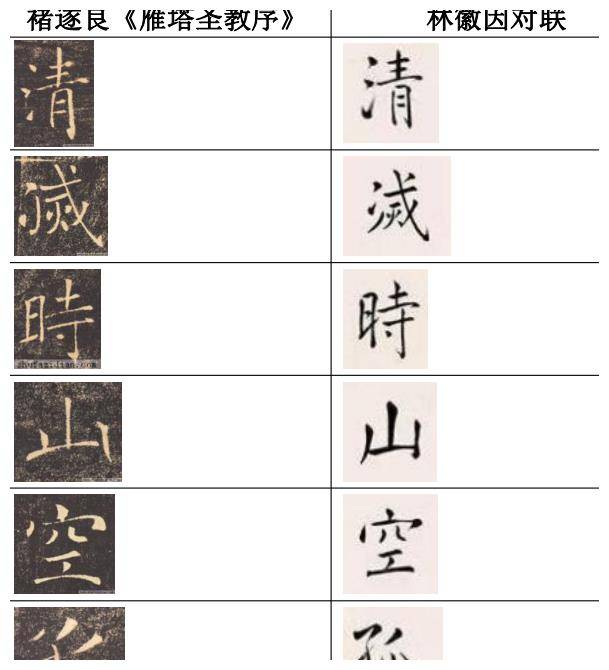 褚遂良《雁塔圣教序》 林徽因对联
清 清
滅 滅
時 時
shufazidian.com
山 山
空 空